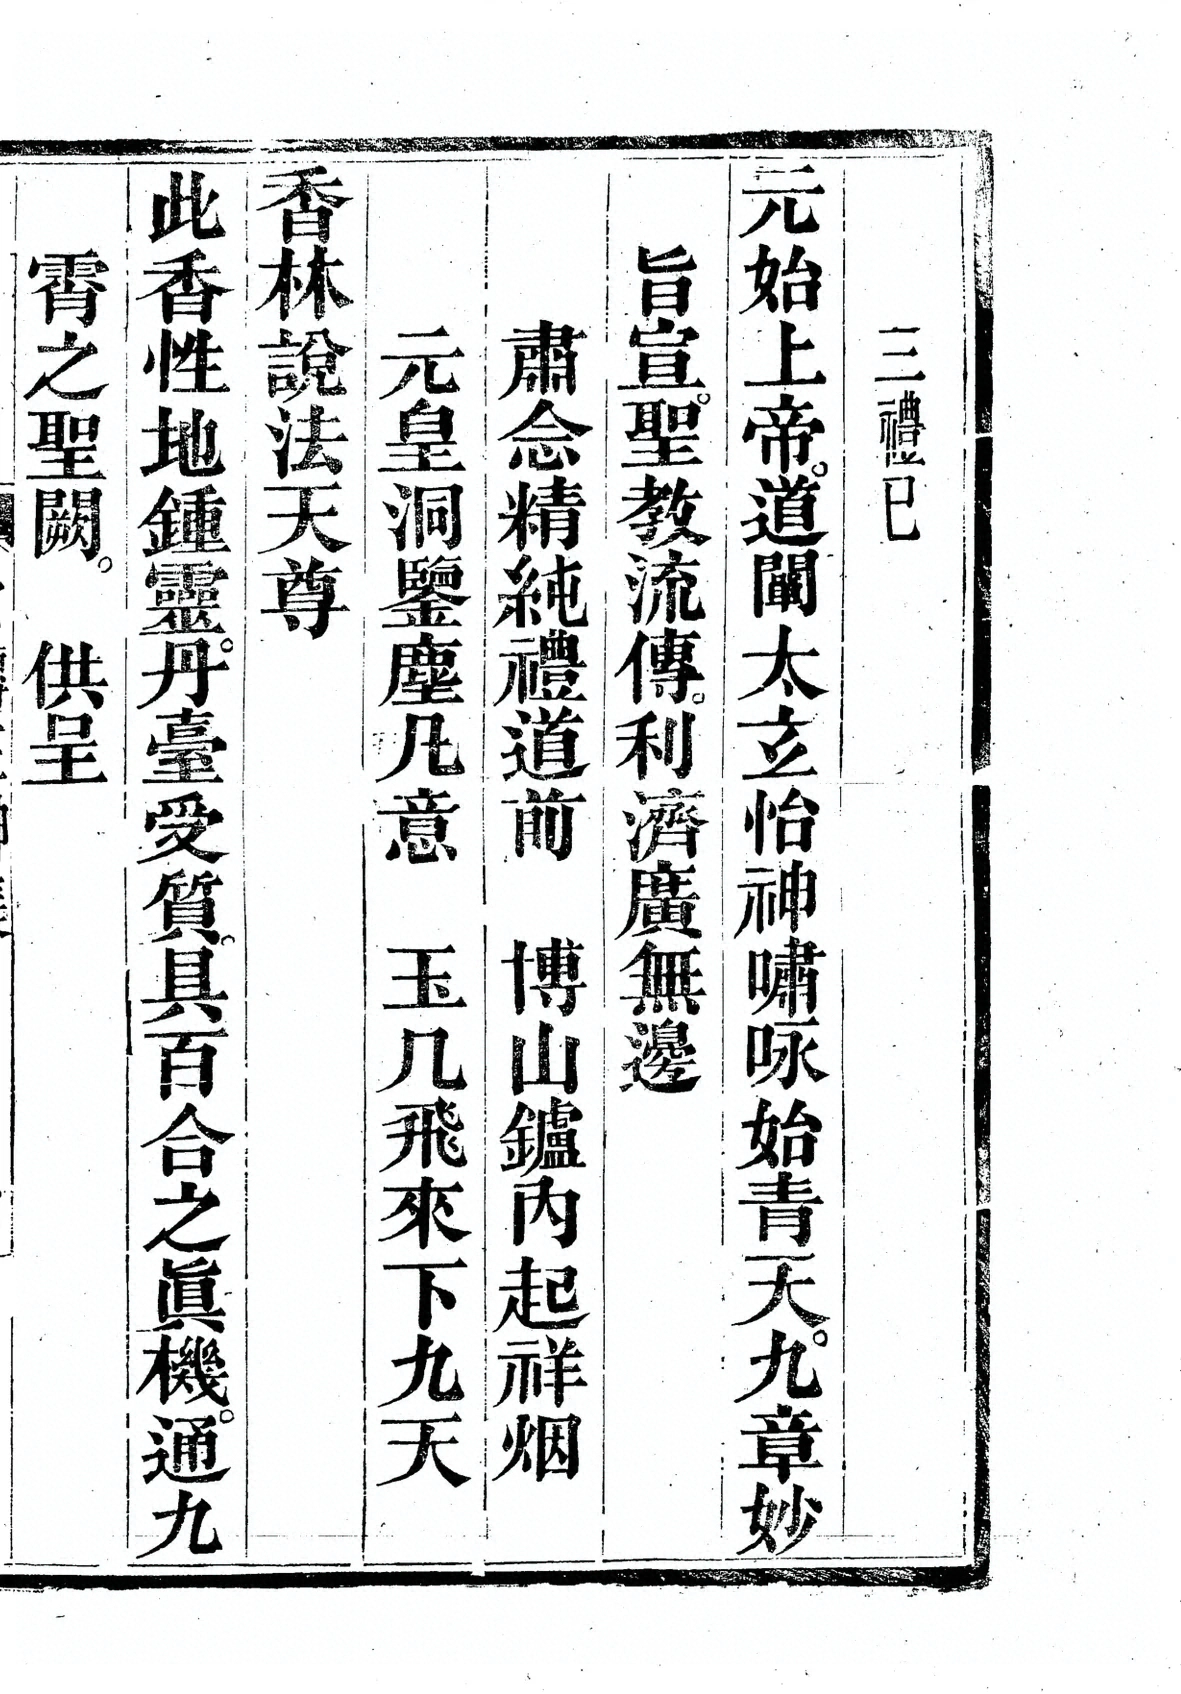 三禮已
元始上帝。道闡太玄怡神嘯咏始青天。九章妙
旨宣。聖教流傳。利濟廣無邊
肅念精純禮道前　博山鑪內起祥烟
元皇洞鑒塵凡意　玉几飛來下九天
香林說法天尊
此香性地鍾靈。丹臺受質。具百合之眞機。通九
霄之聖闕。　供呈